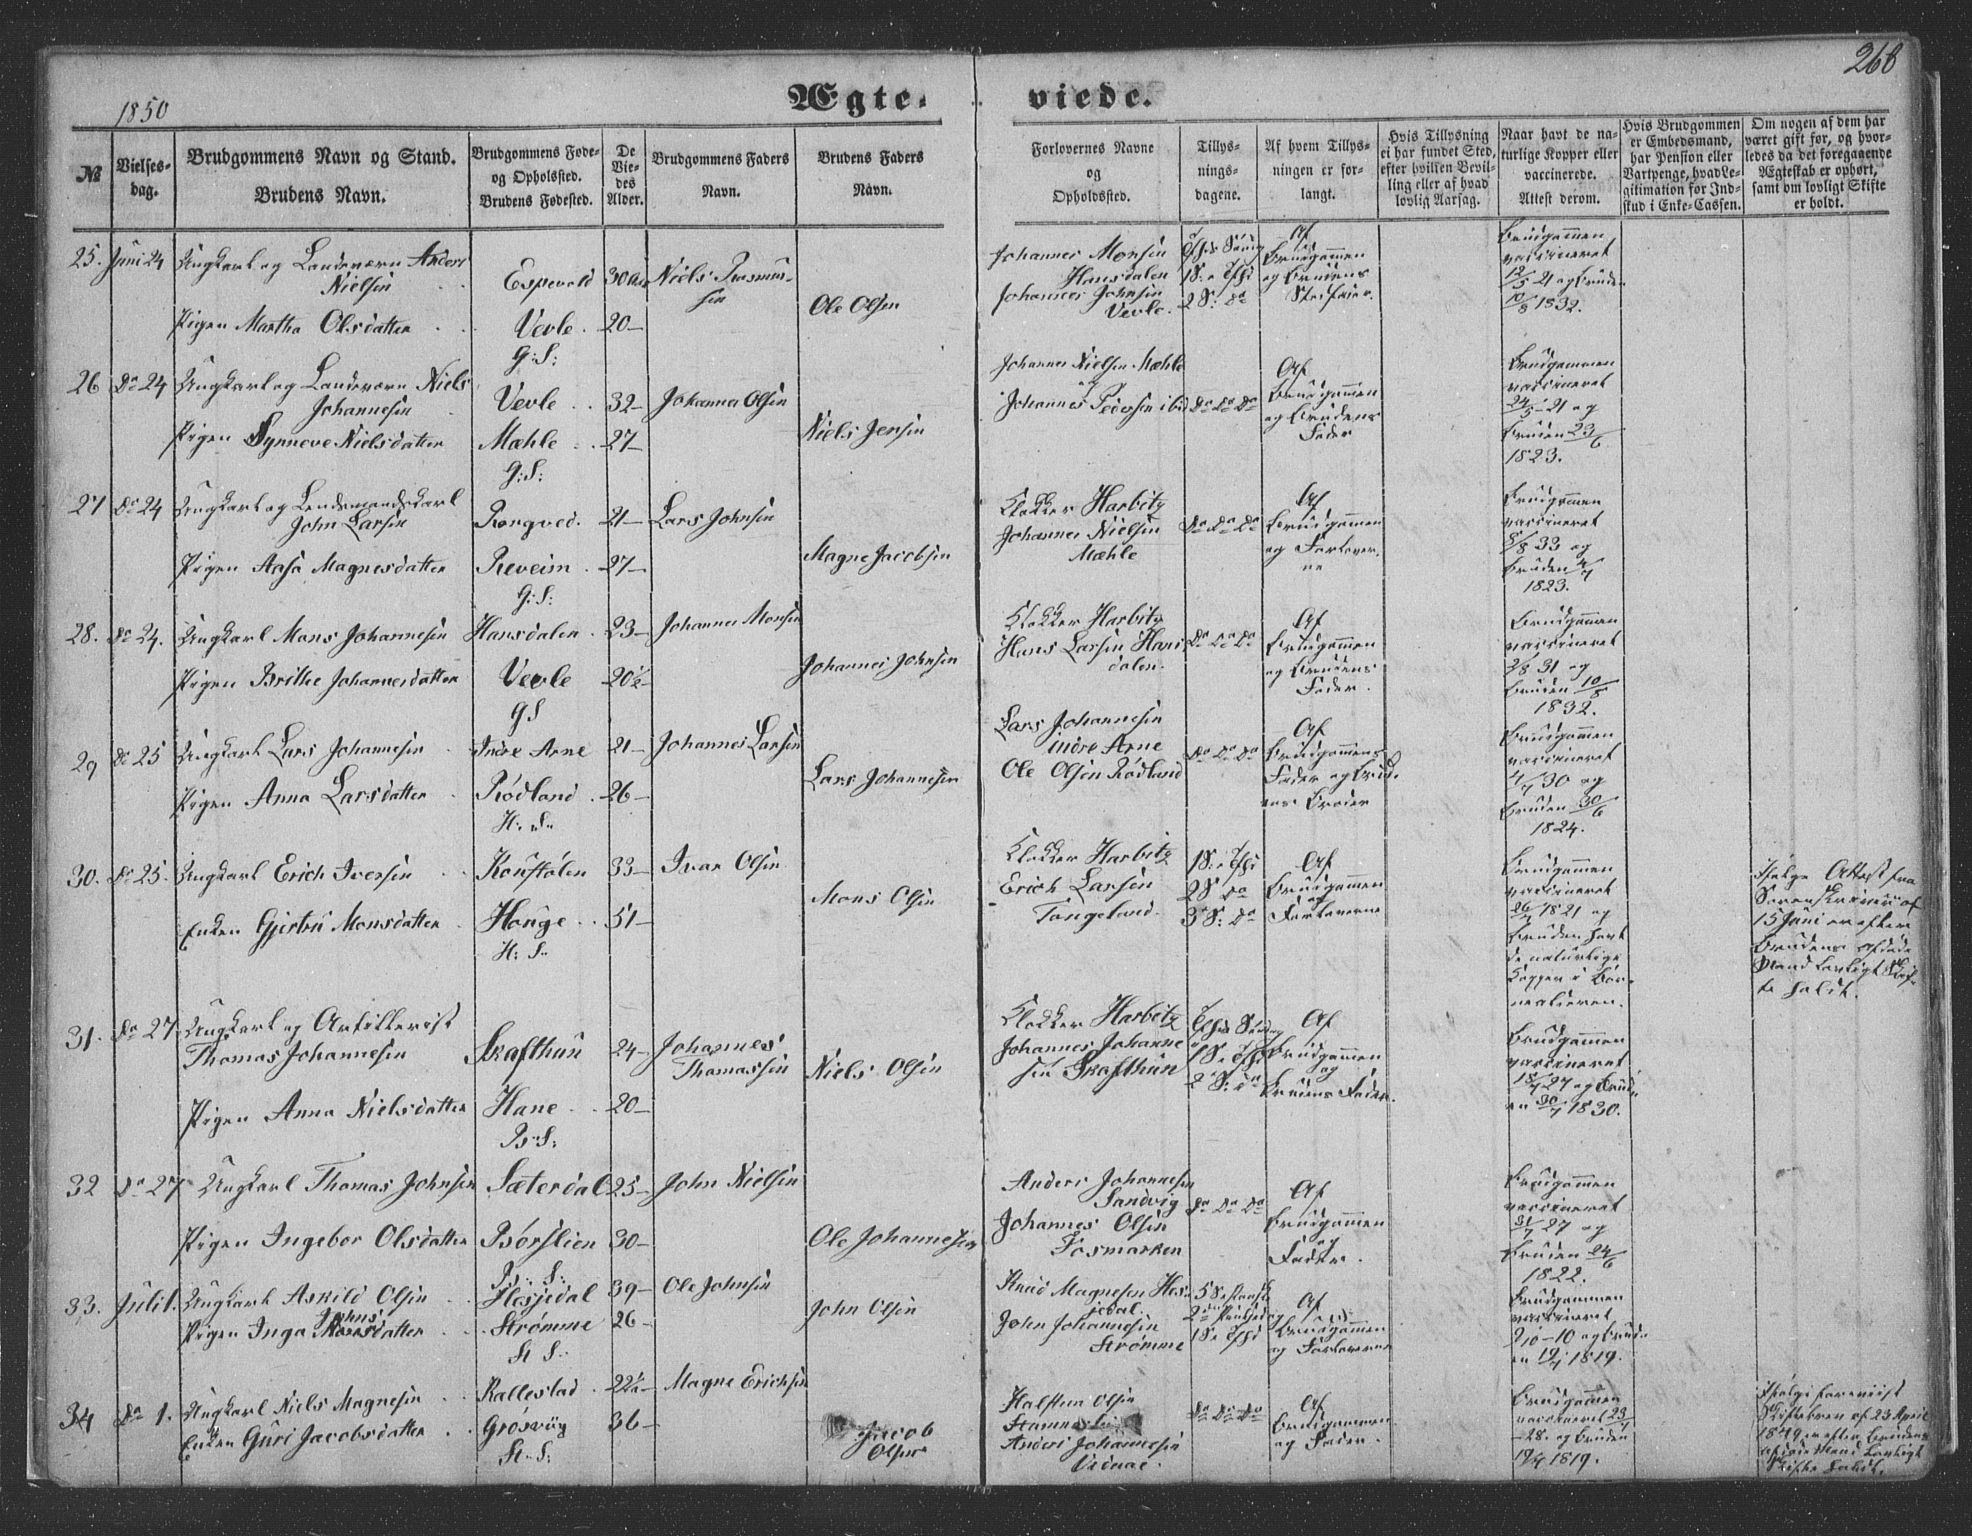 268
1850
Ægte-viede.
№
Vielses-dag.
Brudgommens Navn og Stand.
Brudens Navn.
Brudgommens Føde- og Opholdssted.
Brudens Fødested.
De Viedes Alder.
Brudgommens Faders Navn.
Brudens Faders Navn.
Forlovernes Navne og Opholdssted.
Tillysningsdagene.
Af hvem Tillysningen er forlangt.
Hvis Tillysning ei har fundet Sted, efter hvilken Bevilling eller af hvad lovlig Aarsag.
Naar havt de naturlige Kopper eller vaccinerede. Attest derom.
Hvis Brudgommen er Embedsmand, har Pension eller Vartpenge, hvad Legitimation for Indskud i Enke-Cassen.
Om nogen af dem har været gift før, og hvorledes da det foregaaende Ægteskab er ophørt, samt om lovligt Skifte er holdt.
25. Juni 24 Ungkarl og Landeværn Anders Nielsen Espevold 30 Niels Rasmusen
Johannes Monsen Hansdalen
Johannes Johnsen Vevle.
Af Brudgommen og Brudens Stedfader.
Brudgommen vaccineret 12/5 21 og Bruden 10/8 1832.
Pigen Martha Olsdatter Vevle 20 Ole Olsen
G: S:
26 Do 24 Ungkarl og Landeværn Niels Johannesen Vevle 32 Johannes Olsen
Johannes Nielsen Mæhle
Johannes Pedersen ibid Do Do Do
Af Brudgommen og Brudens Fader
Brudgommen vaccineret 24/5 21 og Bruden 23/6 1823.
Pigen Synneve Nielsdatter Mæhle 27 Niels Jensen
G: S:
27 Do 24 Ungkarl og Lendsmandskarl John Larsen 21 Lars Johnsen
Klokker Harbitz
Johannes Nielsen Mæhle Do Do Do
Af Brudgommen og Forloverne
Brudgommen vaccineret 5/8 33 og Bruden 4/7 1823.
Pigen Aasa Magnesdatter Reveim 27 Magne Jacobsen
G: S:
28. Do 24. Ungkarl Mons Johannesen Hansdalen 23 Johannes Monsen
Klokker Harbitz
Hans Larsen Hansdalen. Do Do Do
Af Brudgommen og Brudens Fader.
Brudgommen vaccineret 2/8 31 og Bruden 10/5 1832.
Pigen Brithe Johannesdatter Vevle 20½ Johannes Johnsen
G S
29 Do 25 Ungkarl Lars Johannesen Indre Arne 21 Johannes Larsen
Lars Johannesen indre Arne
Ole Olsen Rødland Do Do Do
Af Brudgommens Fader og Brudens Broder
Brudgommen vaccineret 4/7 30 og Bruden 30/6 1824.
Pigen Anna Larsdatter Rødland 26 Lars Johannesen
H: S
30. Do 25. Ungkarl Erich Iversen 33 Ivar Olsen
Klokker Harbitz
Erich Larsen Tangeland.
Af Brudgommen og Forloverne
Brudgommen vaccineret 26/7 1821 og Bruden havt de naturlige Kopper i Barnealderen.
Ifølge Attest fra Sorenskriveren af 15 Juni er efter Brudens afdøde Mand lovligt Skifte holdt.
Enken Gjertru Monsdatter Houge 51 Mons Olsen
H: S
31. Do 27 Ungkarl og Artillerist Thomas Johannesen Skafthun 24 Johannes Thomassen
Klokker Harbitz
Johannes Johannesen Skafthun
Af Brudgommen og Brudens Fader.
Brudgommen vaccineret 18/7 27 og Bruden 30/7 1830.
Pigen Anna Nielsdatter Hane 20 Niels Olsen
B: S:
32 Do 27 Ungkarl Thomas Johnsen Sæterdal 25 John Nielsen
Anders Johannesen Sandvig
Johannes Olsen Fosmarken Do Do Do
Af Brudgommen og Fader.
Brudgommen vaccineret 31/7 27 og Bruden 24/6 1822.
Pigen Ingebor Olsdatter Børslien 30 Ole Johannesen
B: S:
33. Juli 1. Ungkarl Askild Olsen Hesjedal 39 Ole Johnsen
Knud Magnesen Hesjedal.
John Johannesen Strømme
Af Brudgommen og Forloverne
Brudgommen vaccineret 2/10 10 og Bruden 19/7 1819.
Pigen Inga Johnsdatter Strømme 26 John Olsen
St S:
34 Do 1. Ungkarl Niels Magnesen Rallestad 22½ Magne Erichsen
Halsten Olsen
Anders Johannesen Do Do Do
Af Brudgommen og Fader.
Brudgommen vaccineret 23 28. og Bruden 1819.
Ifølge Skiftebrev af 23 April 1849 er efter Brudens afdøde Mand lovligt Skifte holdt.
Enken Guri Jacobsdatter Grøsviig 36 Jacob Olsen
St. S: